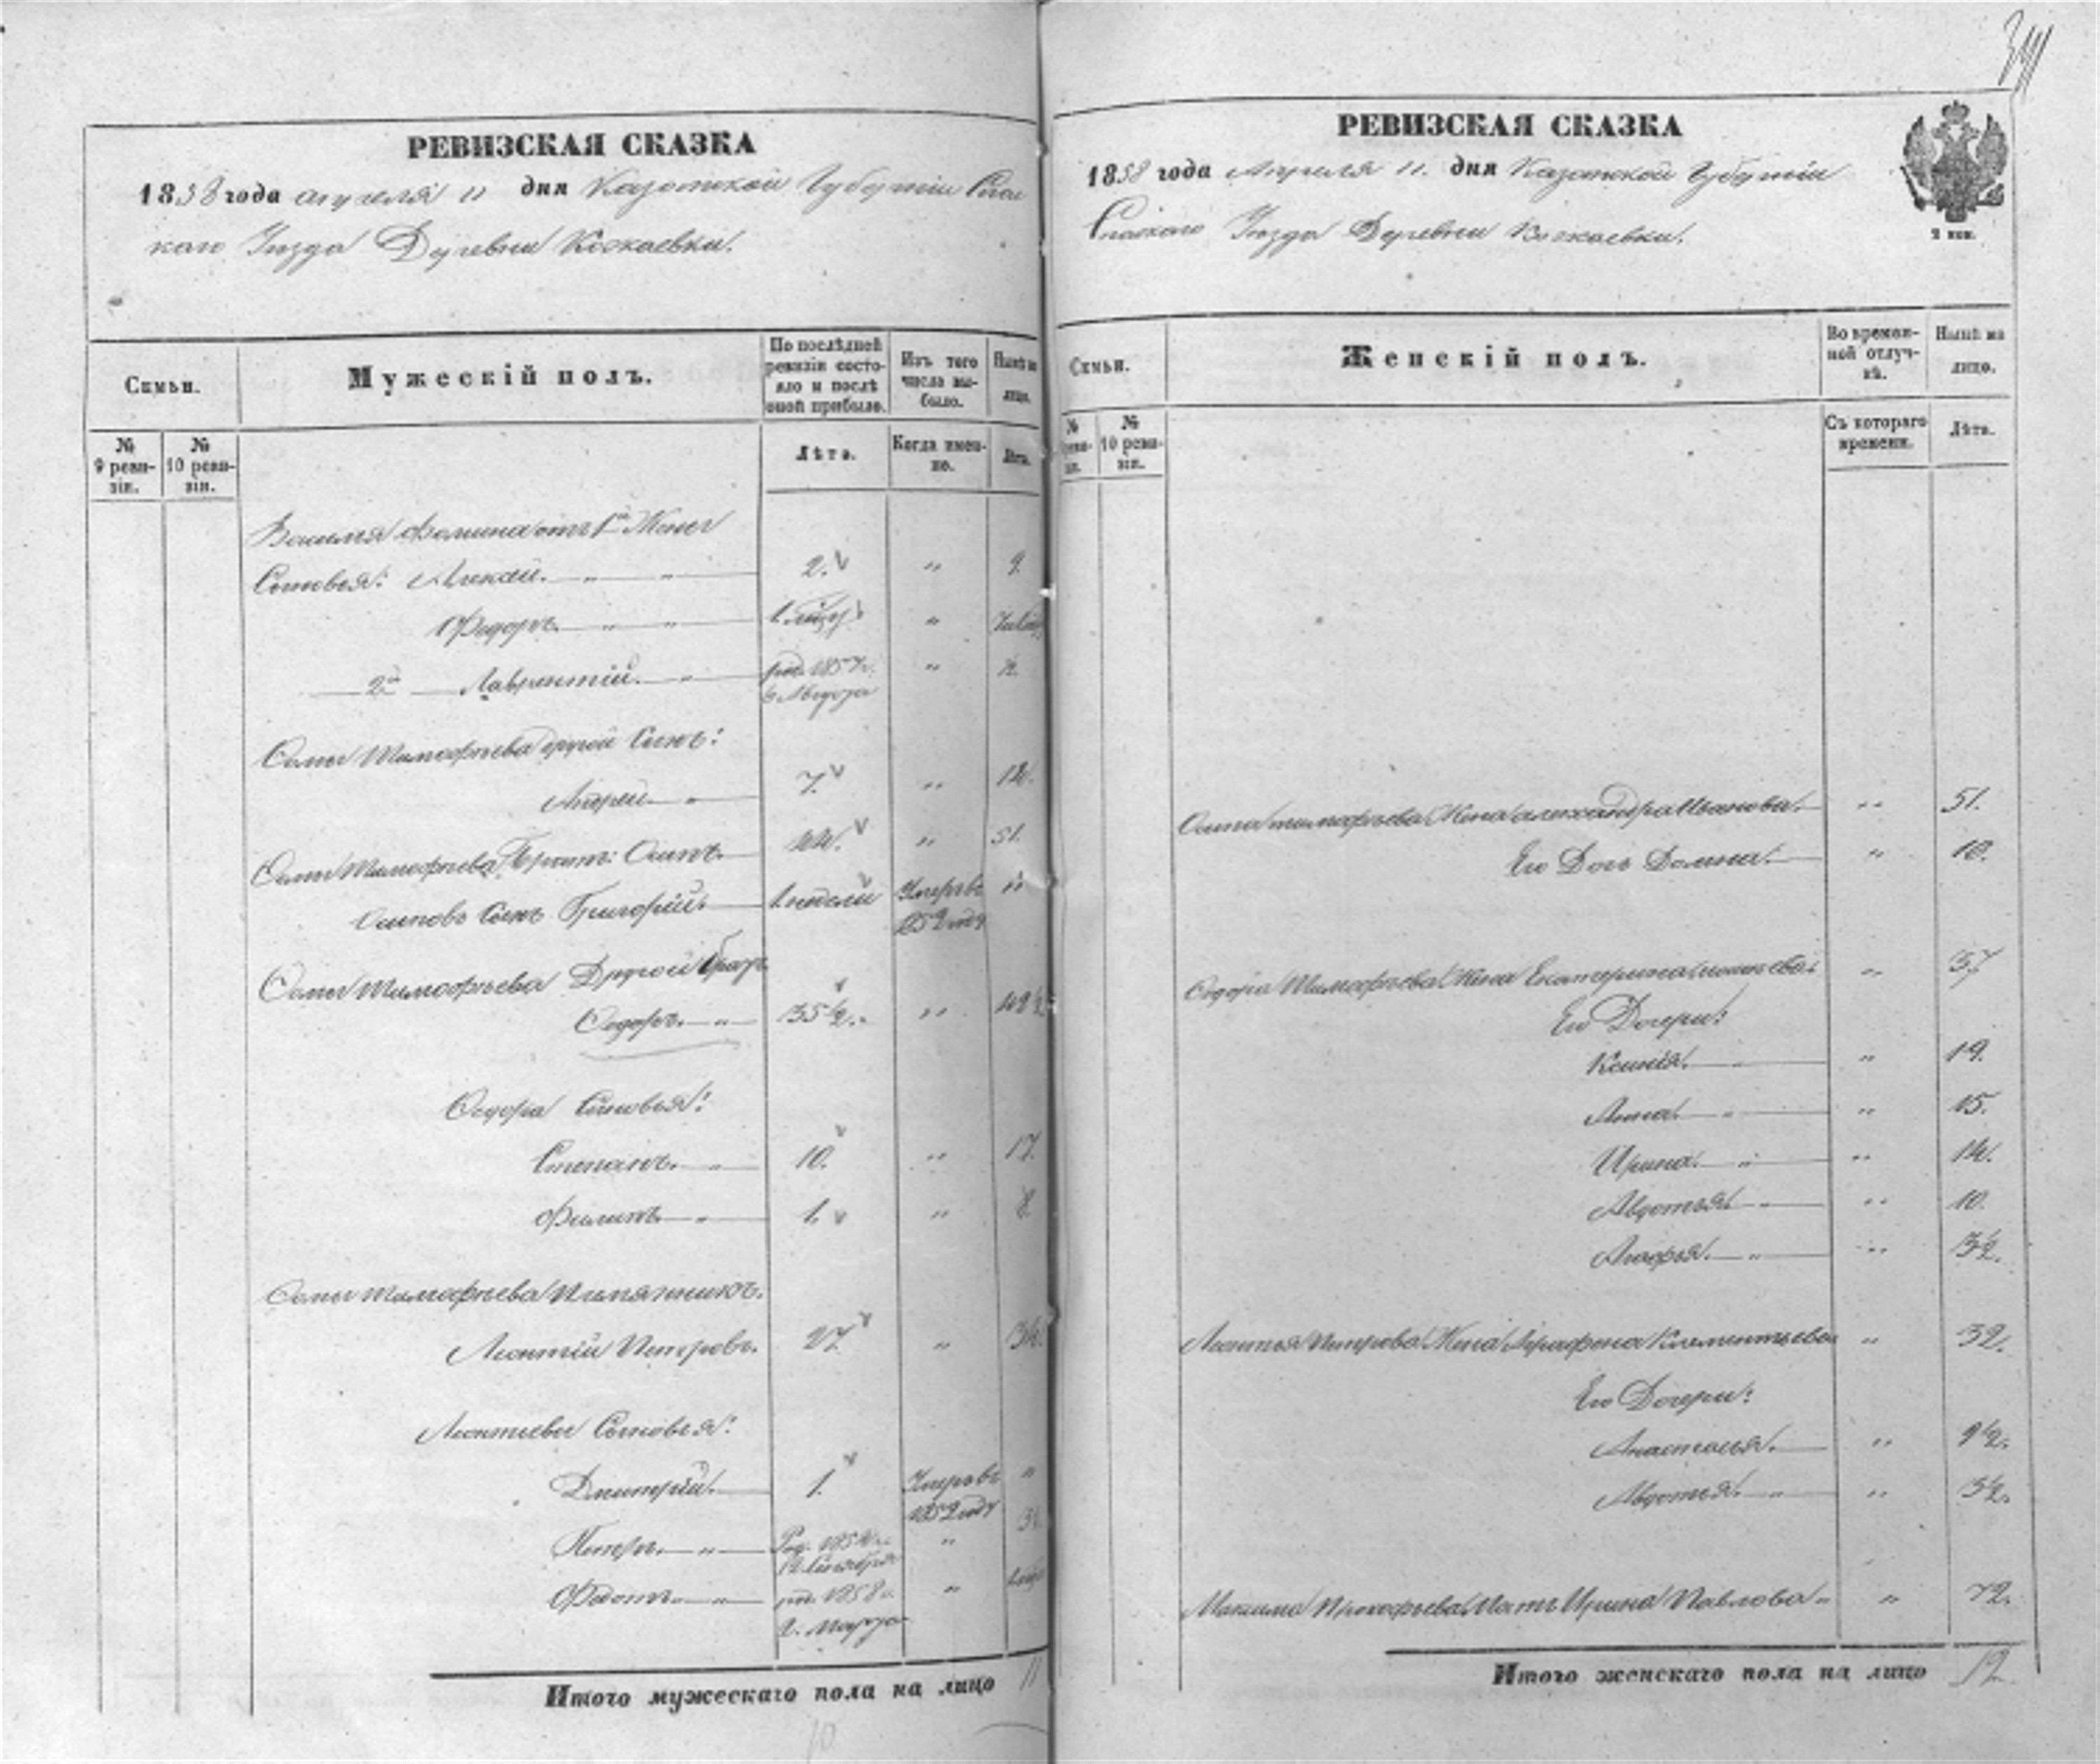 РЕВИЗСКАЯ СКАЗКА
1858 года апреля 11 дня Казанской Губернии Спас
каго Уезда Деревни Кожаевки.
Семьи.
Мужескій полъ.
По послѣдней ревизіи состояло и послѣ оной прибыло.
Изъ того числа выбыло.
Нынѣ на лицо.
№ 9 ревизіи.
№ 10 ревизіи.
Лѣта.
Когда именно.
Лѣта.
Василья Фомина отъ 1й Жены
Сыновья: Алексей. 2. " 9.
Федоръ "
2й Лаврентій. род. 1857 г. 6 Августа " ½
Фомы Тимофеева другой Сынъ:
Андрей 7. " 14.
Фомы Тимофеева Осипъ. 44. " 51.
Осиповъ Сынъ Григорій 1 недели Умеръ въ 1852 году "
Фомы Тимофеева Другой братъ
Федоръ. 35½. " 42½
Федора Сыновья:
Степанъ. 10. " 17.
Филипъ 1. " 8.
Фомы Тимофеева Племянникъ.
Леонтій Петровъ. 27. " 34.
Леонтьевы Сыновья:
Дмитрій. 1. Умеръ въ 1852 году "
Петръ. Род. 1854 г. " 3½
Федотъ род. 1858 г. 2. Марта "
Итого мужескаго пола на лицо 11
10
РЕВИЗСКАЯ СКАЗКА
1858 года Апреля 11. дня Казанской Губернии
Спаскаго Уезда Деревни Кожаевки.
2 коп.
Семьи.
Женскій полъ.
Во временной отлучкѣ.
Нынѣ на лицо.
№ 10 ревизіи.
Съ котораго времени.
Лѣта.
Осипа Тимофеева Жена Александра Иванова. " 51.
Его Дочь Домна. " 10.
Федора Тимофеева Жена Екатерина " 37
Его Дочери:
Ксенія. " 19.
Анна. " 15.
Ирина. " 14.
Авдотья. " 10.
Агафья. " 3½.
Леонтья Петрова Жена Аграфена Клементьева " 32.
Его Дочери:
Анастасья. " 9½.
Авдотья. " 3½.
Максима Прокофьева Мать Ирина Павлова " 72.
Итого женскаго пола на лицо 12